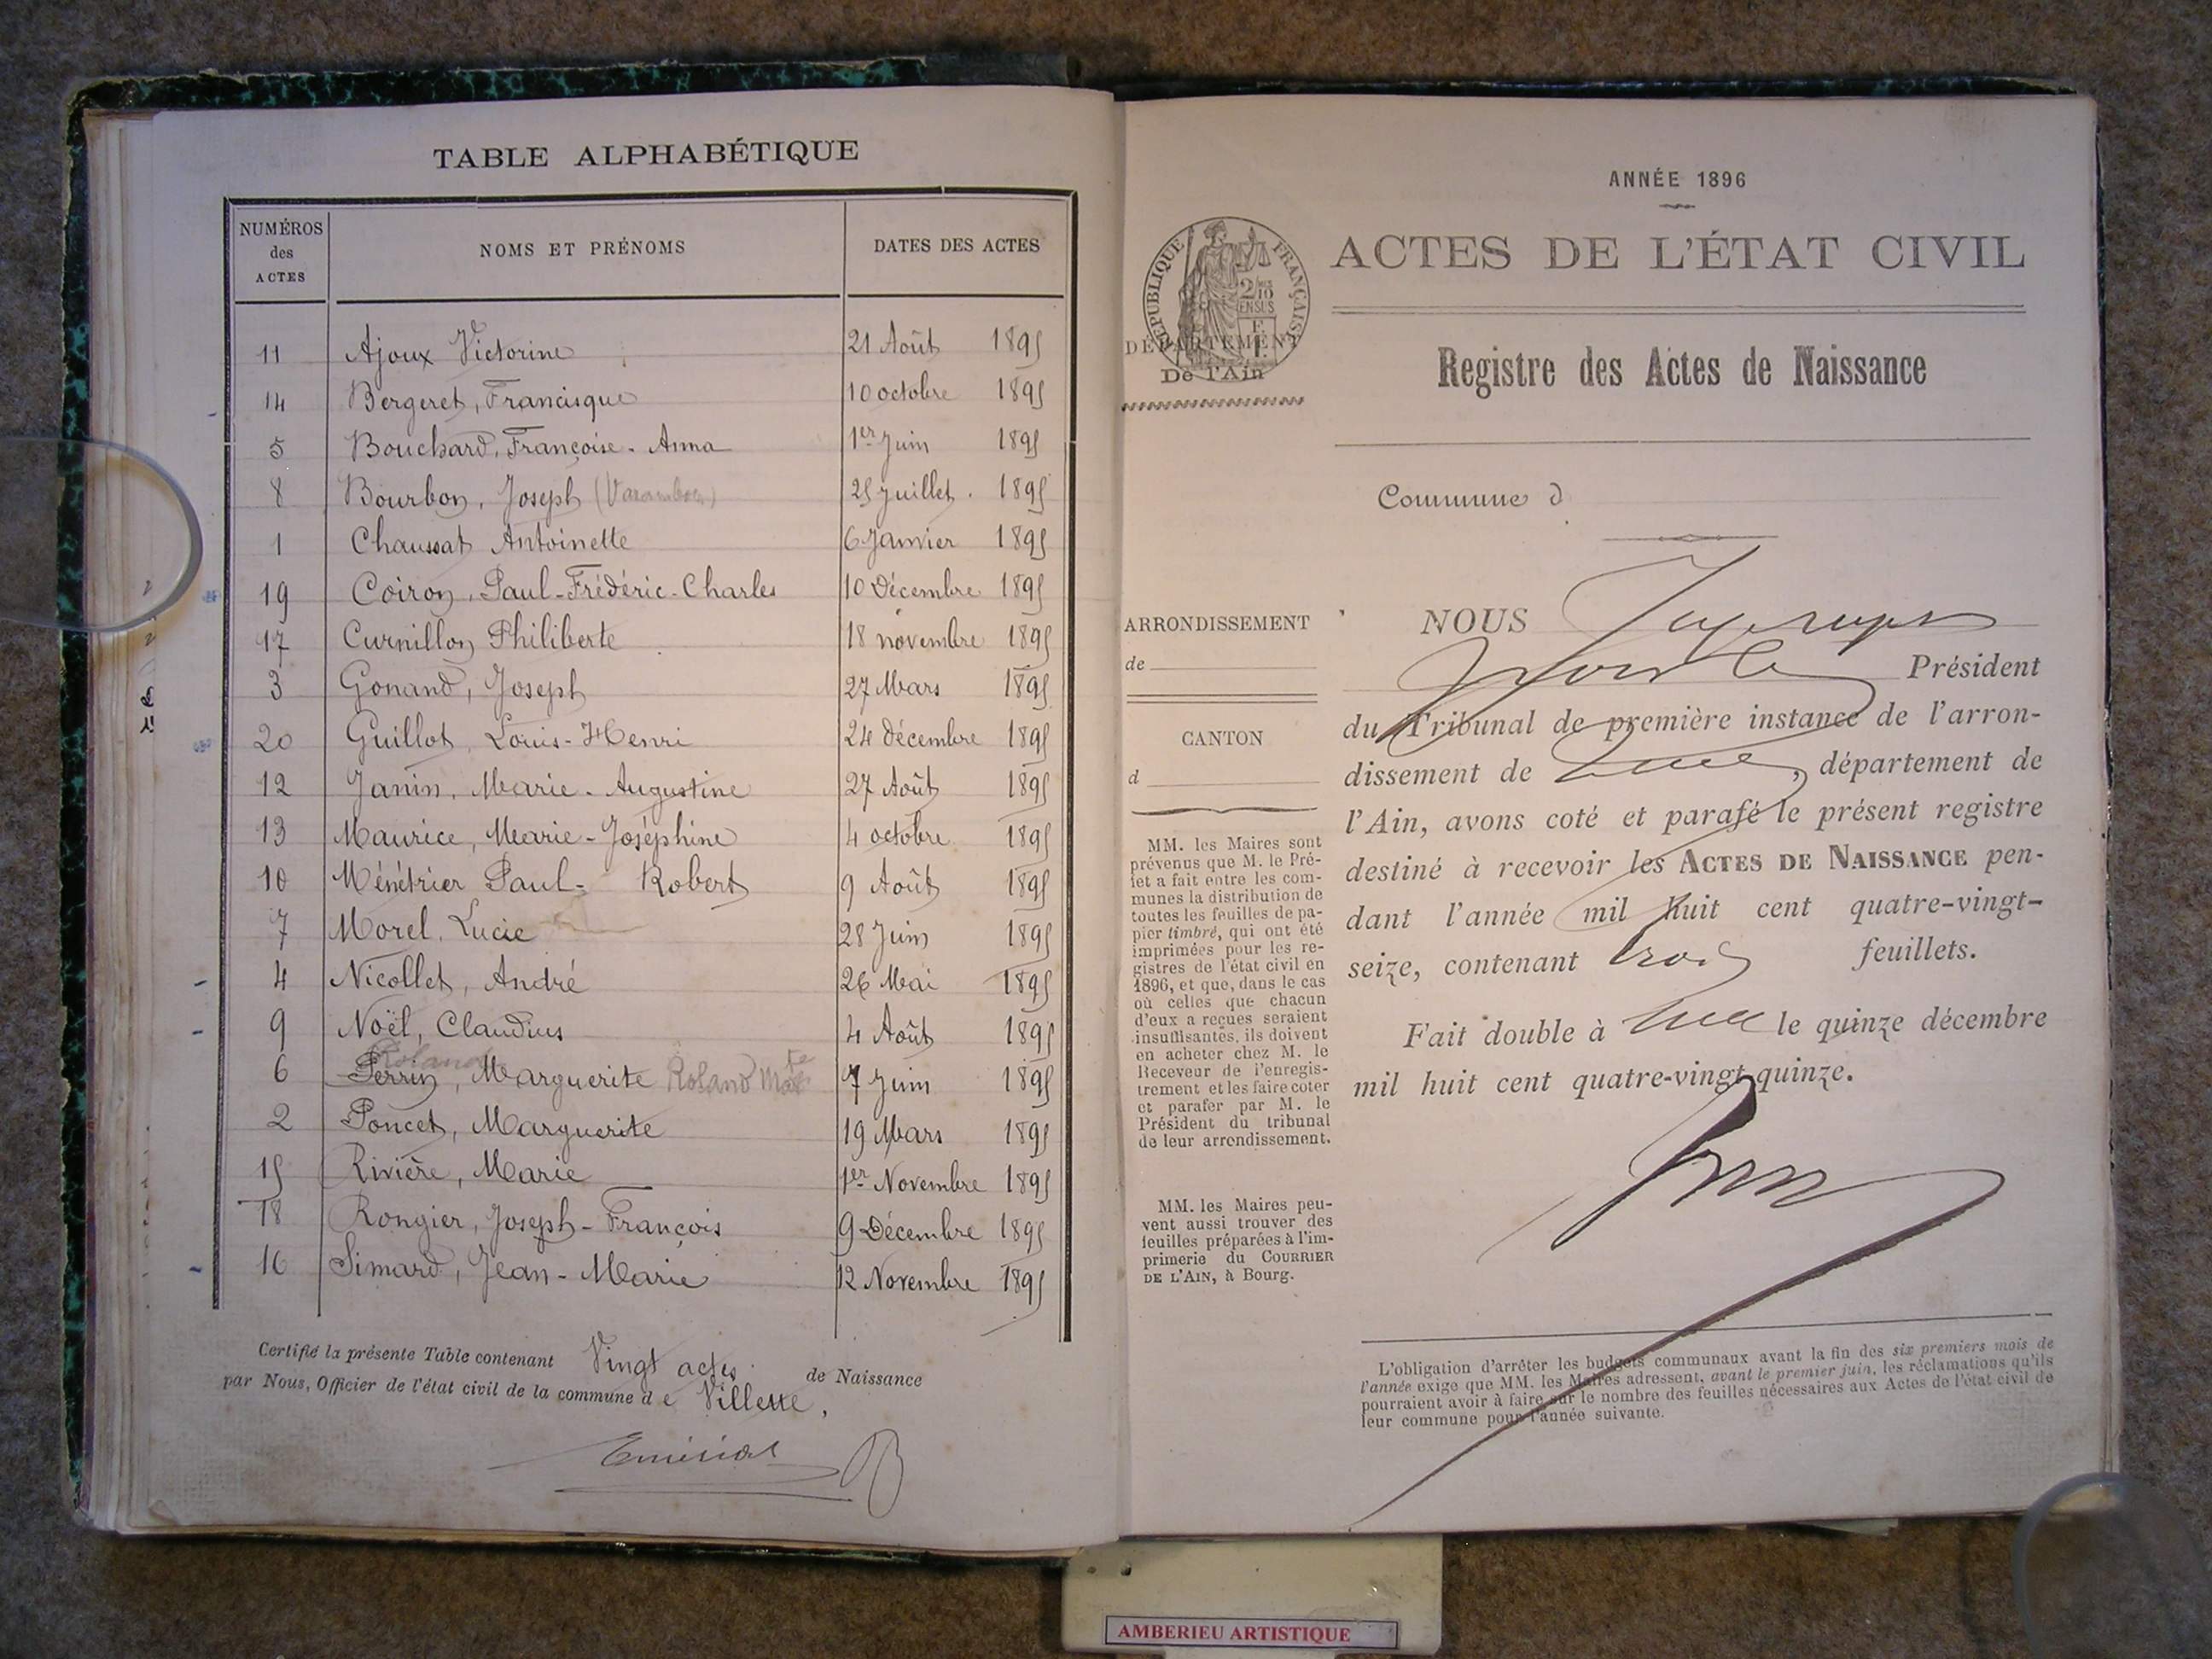 TABLE ALPHABÉTIQUE
NUMÉROS des ACTES NOMS ET PRÉNOMS DATES DES ACTES
11 Ajoux Victorine 21 Août 1895
14 Bergeret, Francisque 10 octobre 1895
5 Bouchard, Françoise-Anna 1er Juin 1895
8 Bourbon, Joseph (Varambon) 25 Juillet 1895
1 Chaussat Antoinette 6 Janvier 1895
19 Coiron, Paul-Frédéric-Charles 10 Décembre 1895
17 Curnillon Philiberte 18 novembre 1895
3 Gonand, Joseph 27 Mars 1895
20 Guillot, Louis-Henri 24 décembre 1895
12 Janin, Marie-Augustine 27 Août 1895
13 Maurice, Marie-Joséphine 4 octobre 1895
10 Ménétrier Paul-Robert 9 Août 1895
7 Morel, Lucie 28 Juin 1895
4 Nicollet, André 26 Mai 1895
9 Noël, Claudius 4 Août 1895
Roland
6 Perrin, Marguerite Roland Mte 7 Juin 1895
2 Poncet, Marguerite 19 Mars 1895
15 Rivière, Marie 1er Novembre 1895
18 Rongier, Joseph-François 9 Décembre 1895
16 Simard, Jean-Marie 12 Novembre 1895
Certifié la présente Table contenant Vingt actes de Naissance
par Nous, Officier de l'état civil de la commune de Villette,
ANNÉE 1896
ACTES DE L'ÉTAT CIVIL
RÉPUBLIQUE FRANÇAISE
DÉPARTEMENT
De l'Ain
Registre des Actes de Naissance
Commune d
ARRONDISSEMENT
de
CANTON
d
MM. les Maires sont
prévenus que M. le Pré-
fet a fait entre les com-
munes la distribution de
toutes les feuilles de pa-
pier timbré, qui ont été
imprimées pour les re-
gistres de l'état civil en
1896, et que, dans le cas
où celles que chacun
d'eux a reçues seraient
insuffisantes, ils doivent
en acheter chez M. le
Receveur de l'enregis-
trement et les faire coter
et parafer par M. le
Président du tribunal
de leur arrondissement.
MM. les Maires peu-
vent aussi trouver des
feuilles préparées à l'im-
primerie du COURRIER
DE L'AIN, à Bourg.
NOUS
Président
du Tribunal de première instance de l'arron-
dissement de , département de
l'Ain, avons coté et parafé le présent registre
destiné à recevoir les ACTES DE NAISSANCE pen-
dant l'année mil huit cent quatre-vingt-
seize, contenant trois feuillets.
Fait double à le quinze décembre
mil huit cent quatre-vingt quinze.
L'obligation d'arrêter les budgets communaux avant la fin des six premiers mois de
l'année exige que MM. les Maires adressent, avant le premier juin, les réclamations qu'ils
pourraient avoir à faire sur le nombre des feuilles nécessaires aux Actes de l'état civil de
leur commune pour l'année suivante.
AMBERIEU ARTISTIQUE